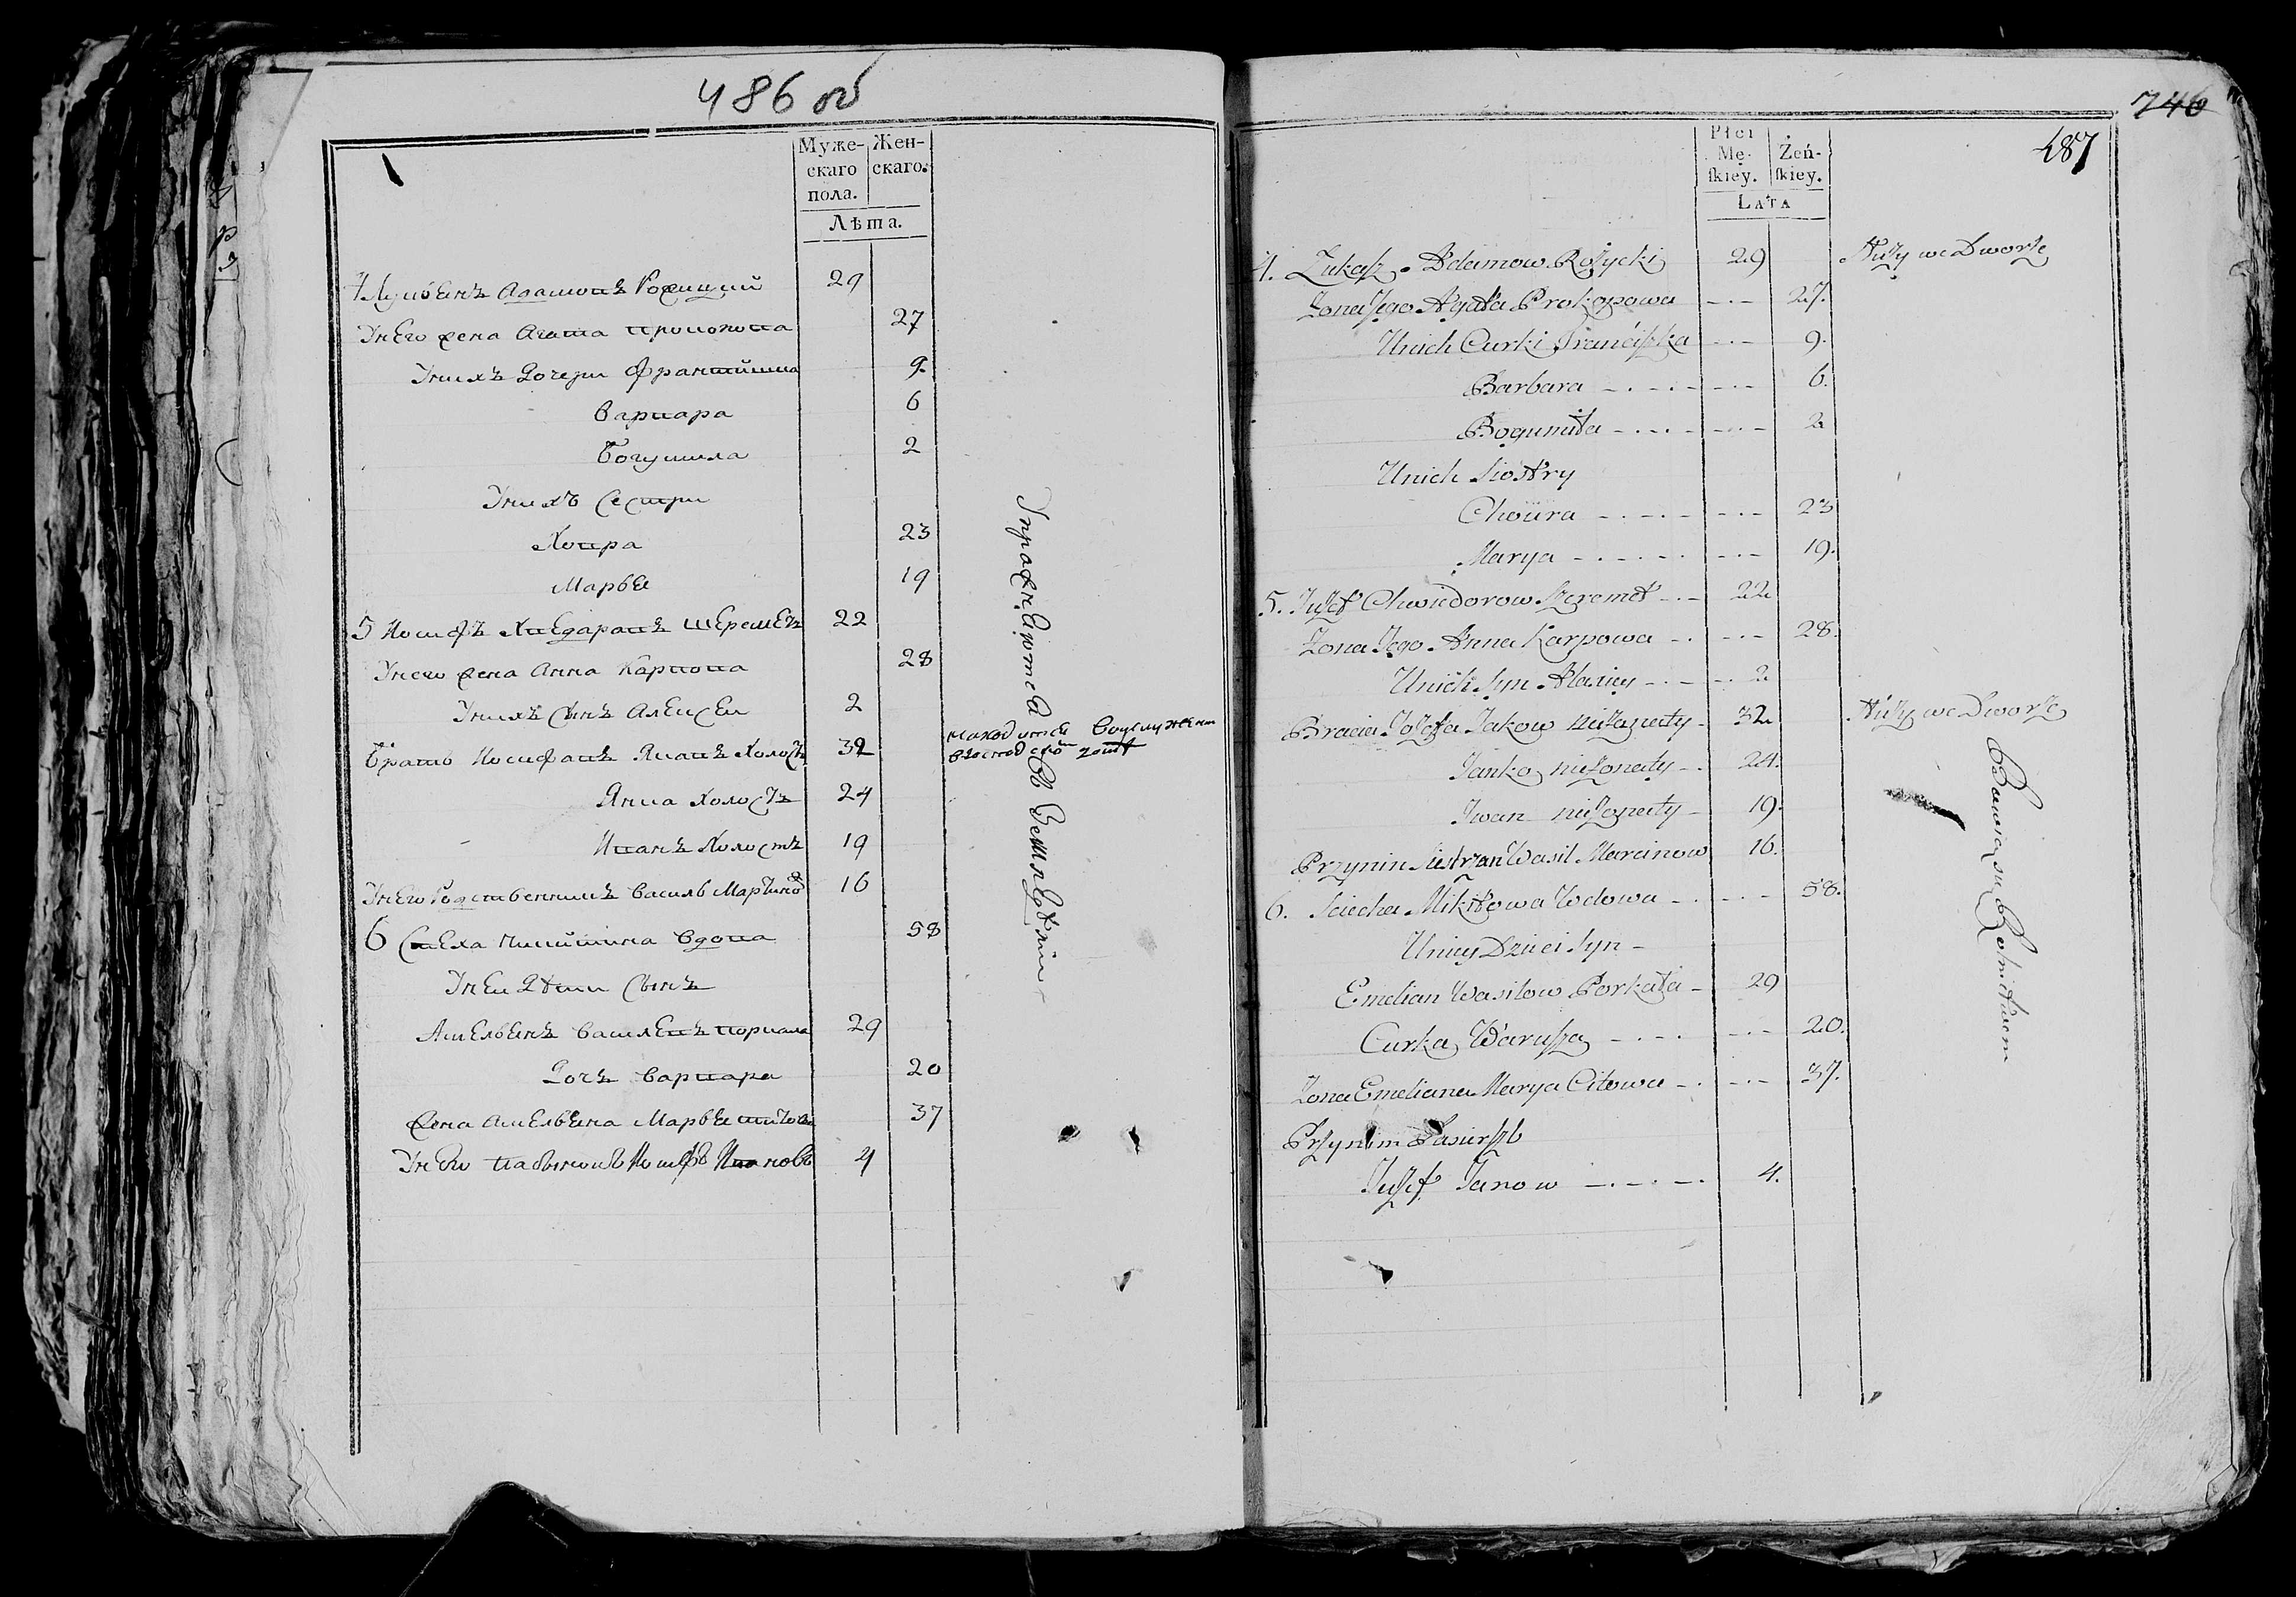 486 об
Муже-
скаго
пола.
Жен-
скаго.
Лѣта.
4 Лукьянъ Адамовъ Рожицкий 29
Унего жена Агата Прокопова 27
Унихъ Дочери Франтишка 9.
Варвара 6
Богумила 2
Унихъ Сестри
Ховра 23
Марья 19
5 Иосифъ Хведаровъ Шереметъ 22
Унего жена Анна Карпова 28
Унихъ Сынъ Алексеи 2
Братъ Иосифавъ Яковъ Холостъ 32
находится Воуслужени
Янка Холостъ 24
Иванъ Холостъ 19
Унего Родственникъ Василь Мартинов 16
6 Стеха Микитина Вдова 58
Унеи Дѣти Сынъ
Амельянъ Васильевъ Поркала 29
Дочъ Варвара 20
Жена Амельяна Марья Титова 37
Унего Пасынокъ Иосифъ Ивановъ 4
Упражняютса въ Земледѣлии
746
487
Płci
Mę-
ſkiey.
Żeń-
ſkiey.
Lata
4. Łukaſz Adamow Rożycki 29 Służy we Dworze
Zona Jego Agata Prokopowa 27.
Unich Curki Franciſzka 9.
Barbara 6.
Bogumiła 2
Unich Siostry
Chowra 23
Marya 19.
5. Juzef Chwiedorow Szeremet 22
Zona Jego Anna Karpowa 28.
Unich Syn Alexiey 2
Bracia Jozefa Jakow nieżonaty 32 Służy we Dworze
Janko nieżonaty 24.
Iwan nieżonaty 19.
Przynim Siestrzan Wasil Marcinow 16.
6. Sciecha Mikitowa Wdowa 58.
Uniey Dzieci Syn
Emelian Wasilow Porkała 29
Curka Waruſza 20.
Zona Emeliana Marya Citowa 37.
Przynim Pasierzb
Juzef Janow 4.
Bawią się Rolnictwem